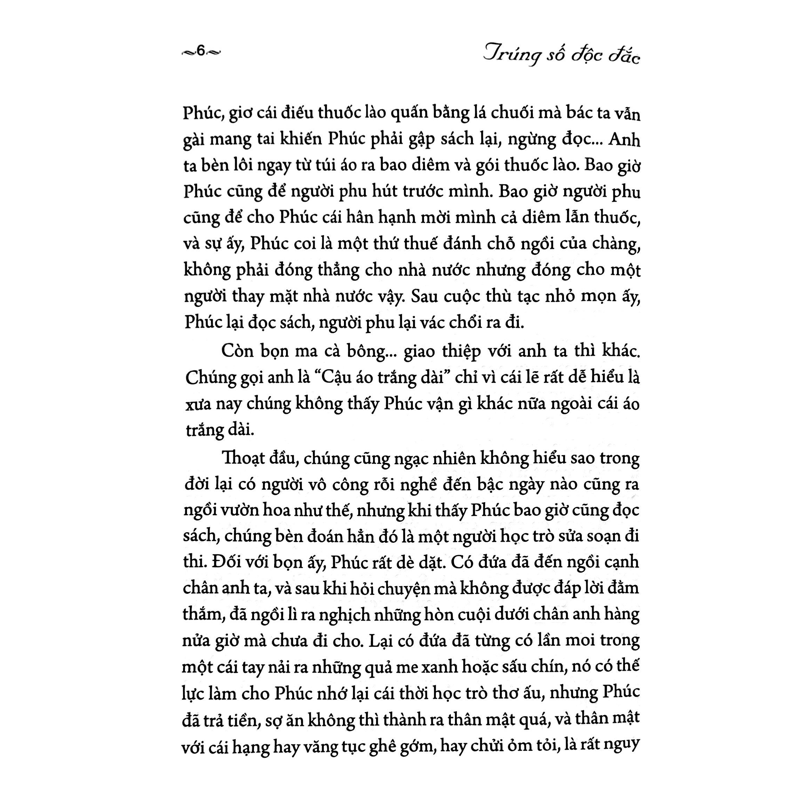 ~6~ Trúng số độc đắc
Phúc, giơ cái điếu thuốc lào quấn bằng lá chuối mà bác ta vẫn
gài mang tai khiến Phúc phải gập sách lại, ngừng đọc... Anh
ta bèn lôi ngay từ túi áo ra bao diêm và gói thuốc lào. Bao giờ
Phúc cũng để người phu hút trước mình. Bao giờ người phu
cũng để cho Phúc cái hân hạnh mời mình cả diêm lẫn thuốc,
và sự ấy, Phúc coi là một thứ thuế đánh chỗ ngồi của chàng,
không phải đóng thẳng cho nhà nước nhưng đóng cho một
người thay mặt nhà nước vậy. Sau cuộc thù tạc nhỏ mọn ấy,
Phúc lại đọc sách, người phu lại vác chổi ra đi.
Còn bọn ma cà bông... giao thiệp với anh ta thì khác.
Chúng gọi anh là “Cậu áo trắng dài” chỉ vì cái lẽ rất dễ hiểu là
xưa nay chúng không thấy Phúc vận gì khác nữa ngoài cái áo
trắng dài.
Thoạt đầu, chúng cũng ngạc nhiên không hiểu sao trong
đời lại có người vô công rỗi nghề đến bậc ngày nào cũng ra
ngồi vườn hoa như thế, nhưng khi thấy Phúc bao giờ cũng đọc
sách, chúng bèn đoán hẳn đó là một người học trò sửa soạn đi
thi. Đối với bọn ấy, Phúc rất dè dặt. Có đứa đã đến ngồi cạnh
chân anh ta, và sau khi hỏi chuyện mà không được đáp lời đằm
thắm, đã ngồi lì ra nghịch những hòn cuội dưới chân anh hàng
nửa giờ mà chưa đi cho. Lại có đứa đã từng có lần moi trong
một cái tay nải ra những quả me xanh hoặc sấu chín, nó có thế
lực làm cho Phúc nhớ lại cái thời học trò thơ ấu, nhưng Phúc
đã trả tiền, sợ ăn không thì thành ra thân mật quá, và thân mật
với cái hạng hay văng tục ghê gớm, hay chửi ỏm tỏi, là rất nguy